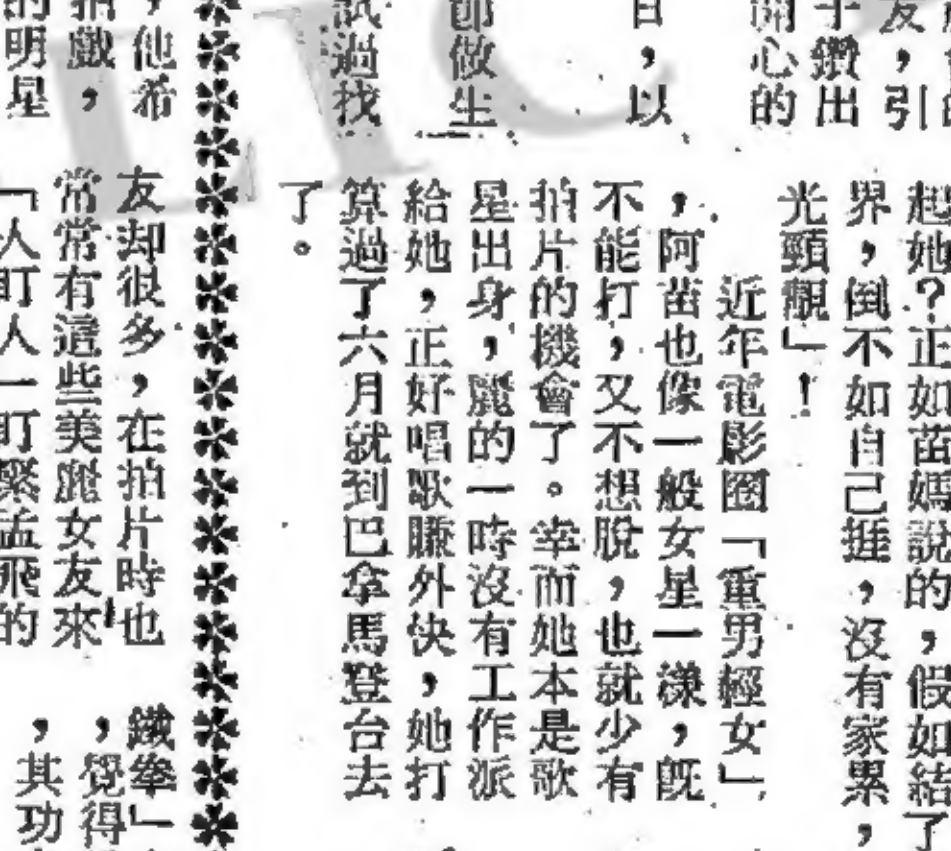 友，引
子鑽出
開心的
日，以
即做生
試過找
起她？正如苗媽說的，假如結了
界，倒不如自己捱，沒有家累，
光頸靚」！
近年電影圈「重男輕女」
，阿苗也像一般女星一樣，既
不能打，又不想脫，也就少有
拍片的機會了。幸而她本是歌
星出身，麗的一時沒有工作派
給她，正好唱歌賺外快，她打
算過了六月就到巴拿馬登台去
了。
，他希
拍戲，
的明星
友却很多，在拍片時也
常常有這些美麗女友來
「人盯人一盯緊孟飛的
鐵拳」
，覺得
，其功